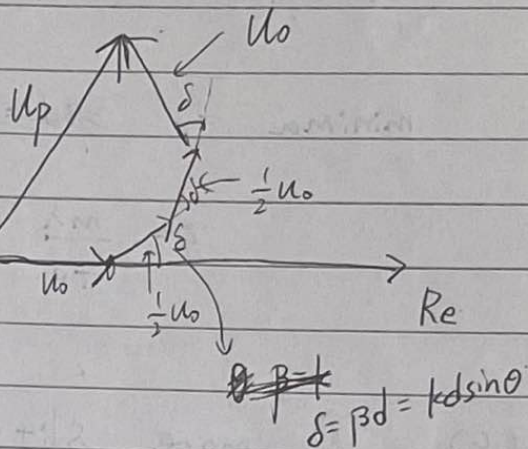 U₀
Up
δ
½u₀
δ
u₀
Re
δ = βd = kd sinθ